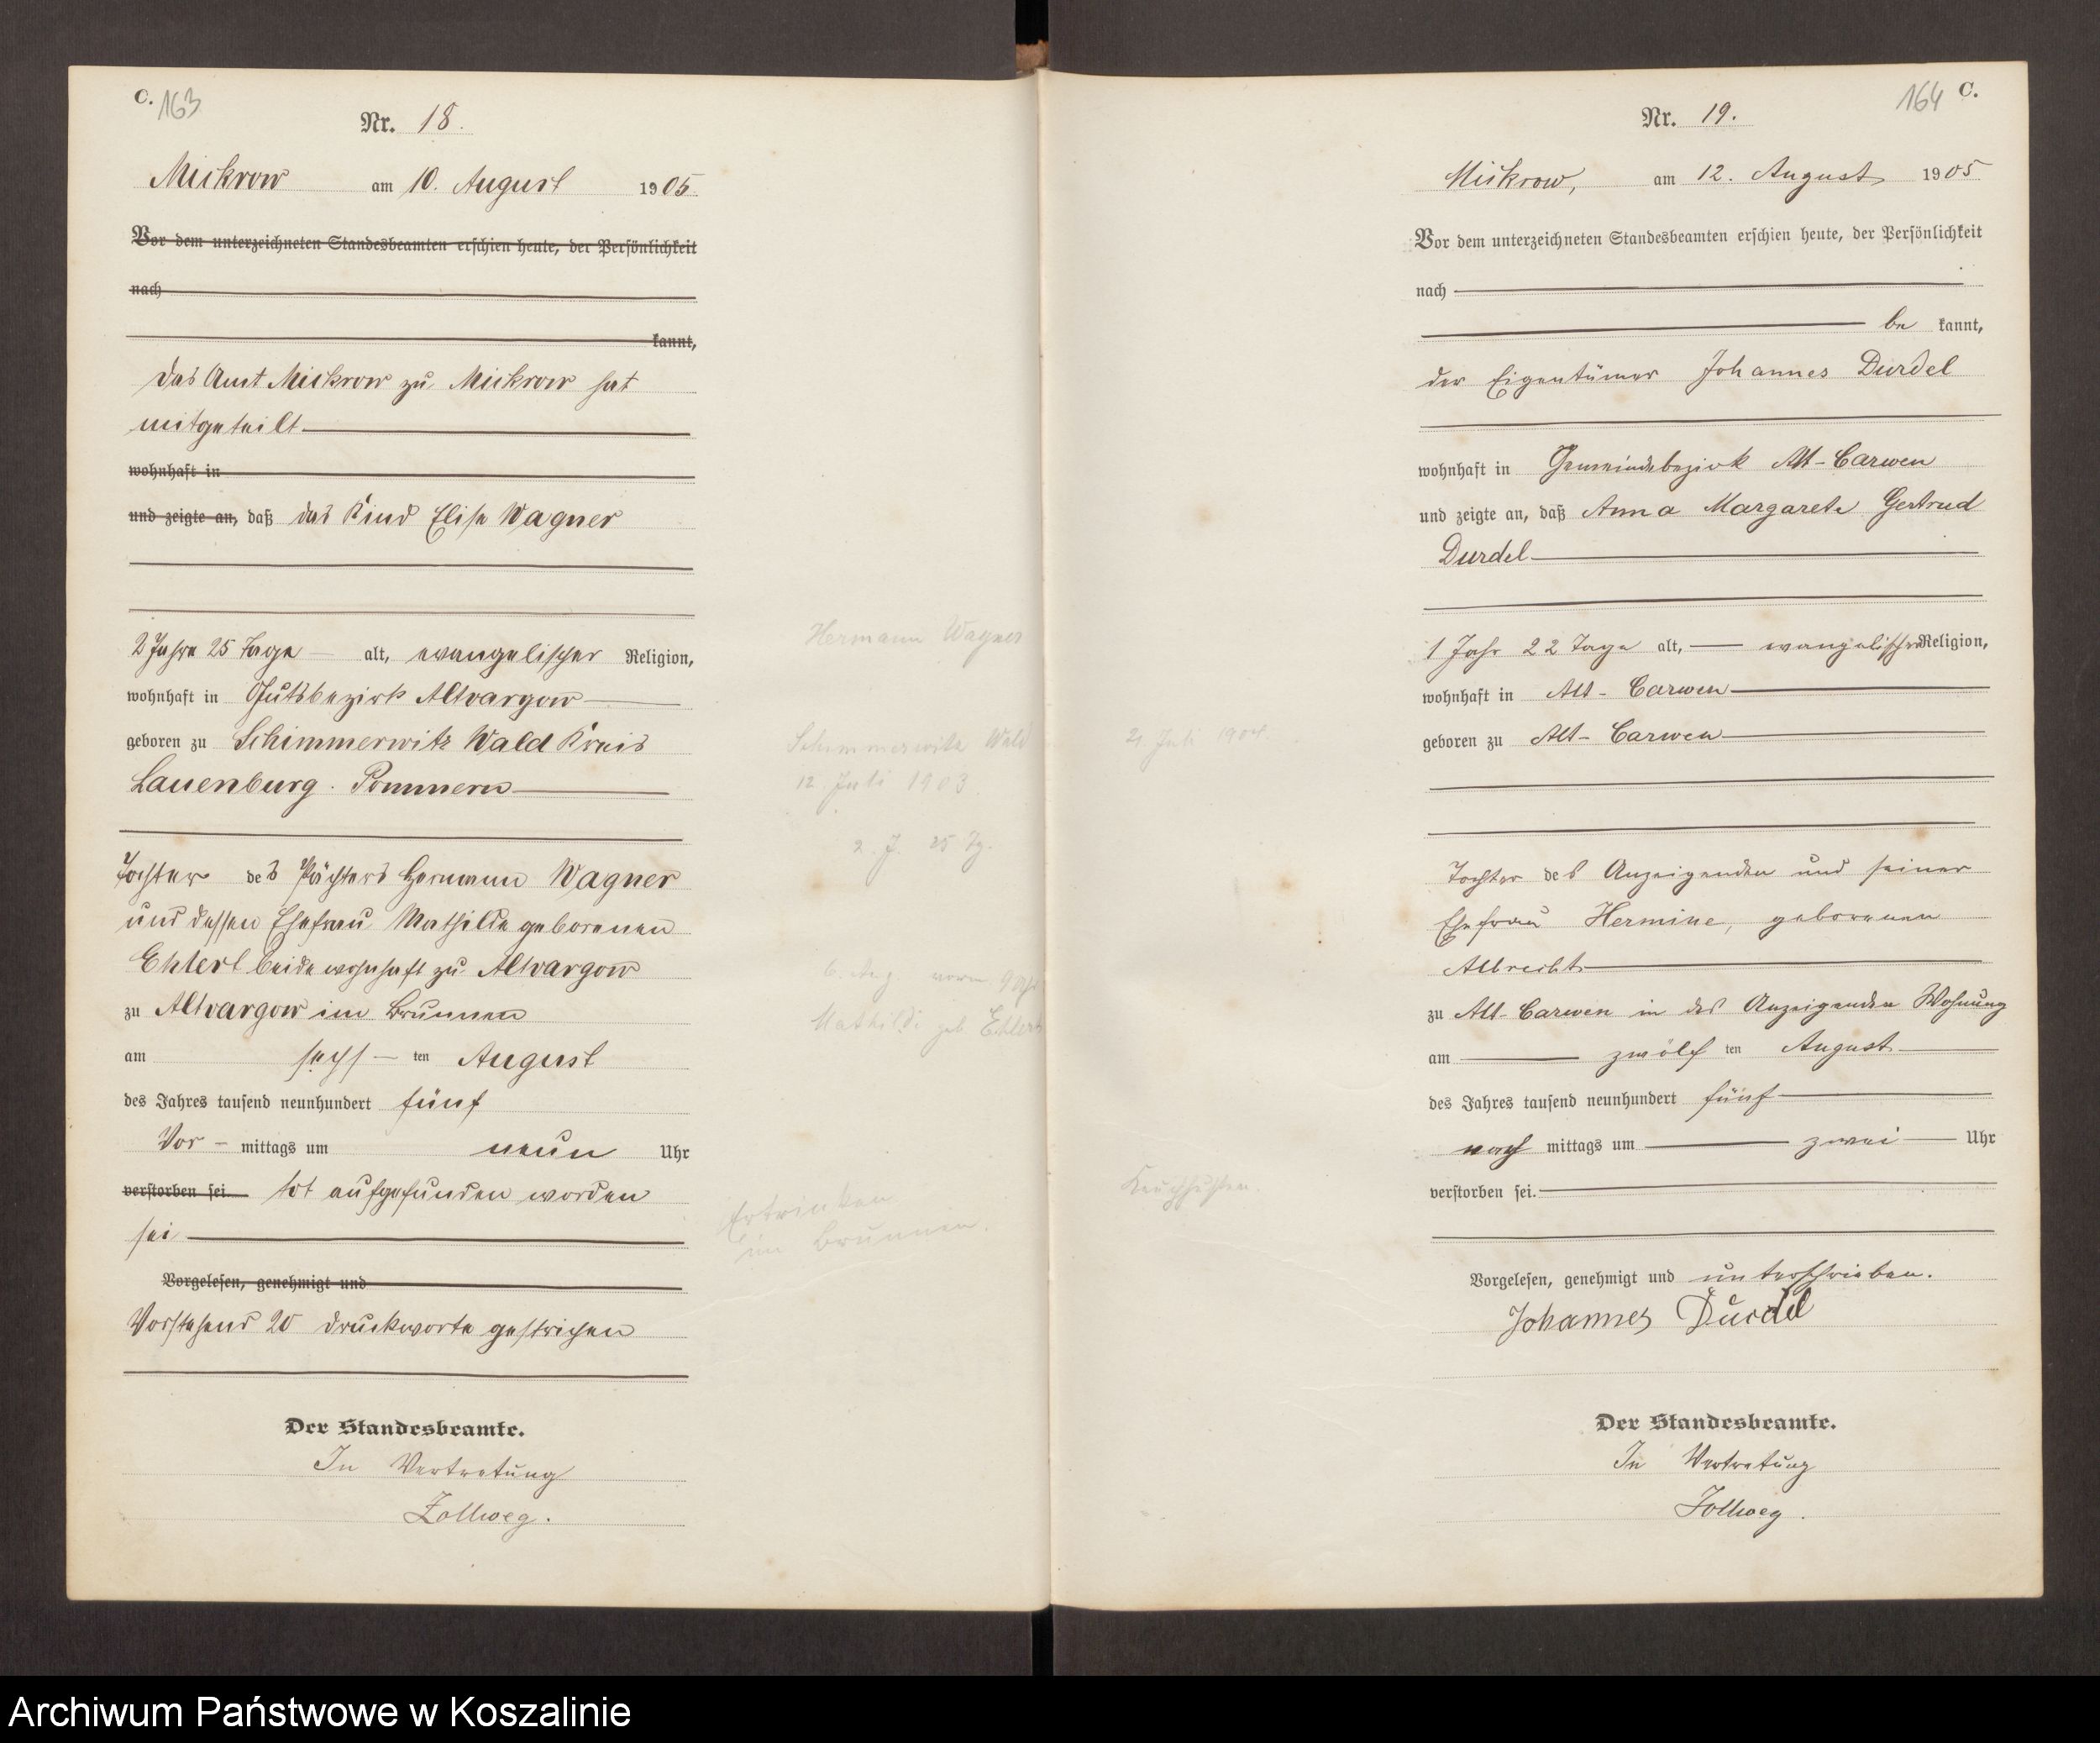 C. 163
Nr. 18.
Mickrow am 10. August 1905.
Vor dem unterzeichneten Standesbeamten erschien heute, der Persönlichkeit
nach
kannt,
das Amt Mickrow zu Mickrow hat
mitgeteilt
wohnhaft in
und zeigte an, daß das Kind Elise Wagner
2 Jahre 25 Tage alt, evangelischer Religion,
wohnhaft in Gutsbezirk Altvargow
geboren zu Schimmerwitz Wald Kreis
Lauenburg. Pommern
Tochter des Pächters Hermann Wagner
und dessen Ehefrau Mathilde geborenen
Ehlert beide wohnhaft zu Altvargow
zu Altvargow im Brunnen
am sechs ten August
des Jahres tausend neunhundert fünf
Vor mittags um neun Uhr
verstorben sei tot aufgefunden worden
sei
Vorgelesen, genehmigt und
Vorstehend 20 Druckworte gestrichen
Der Standesbeamte.
In Vertretung
Zollweg.
Hermann Wagner
Schimmerwitz Wald
12 Juli 1903.
2. J. 25 Tg.
6. Aug vorm 9 Uhr
Mathilde geb Ehlert
Ertrinken
im Brunnen.
164 C.
Nr. 19.
Mickrow, am 12. August 1905
Vor dem unterzeichneten Standesbeamten erschien heute, der Persönlichkeit
nach
be kannt,
der Eigentümer Johannes Durdel
wohnhaft in Gemeindebezirk Alt-Carwen
und zeigte an, daß Anna Margarete Gertrud
Durdel
1 Jahr 22 Tage alt, evangelischer Religion,
wohnhaft in Alt-Carwen
geboren zu Alt-Carwen
Tochter des Anzeigenden und seiner
Ehefrau Hermine, geborenen
Albrecht
zu Alt-Carwen in des Anzeigenden Wohnung
am zwölf ten August
des Jahres tausend neunhundert fünf
nach mittags um zwei Uhr
verstorben sei.
Vorgelesen, genehmigt und unterschrieben.
Johannes Durdel
Der Standesbeamte.
In Vertretung
Zollweg.
21 Juli 1904.
Keuchhusten.
Archiwum Państwowe w Koszalinie